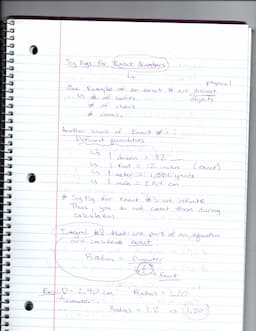 Sig Figs for Exact Numbers
One Example of an exact # are physical objects
# of bodies
# of chairs
# of coins
Another source of Exact #s:
Defined quantities
1 dozen = 12
1 foot = 12 inches (exact)
1 meter =
1 inch = 2.54 cm
* Sig Figs for exact #'s are infinite
Thus, you do not count them during
calculations
Integral #s that are part of an equation
are considered exact
Radius = Diameter
2
Exact
Ex: D = 2.40 cm Radius =
Diameter
Radius = 1.2 1.20